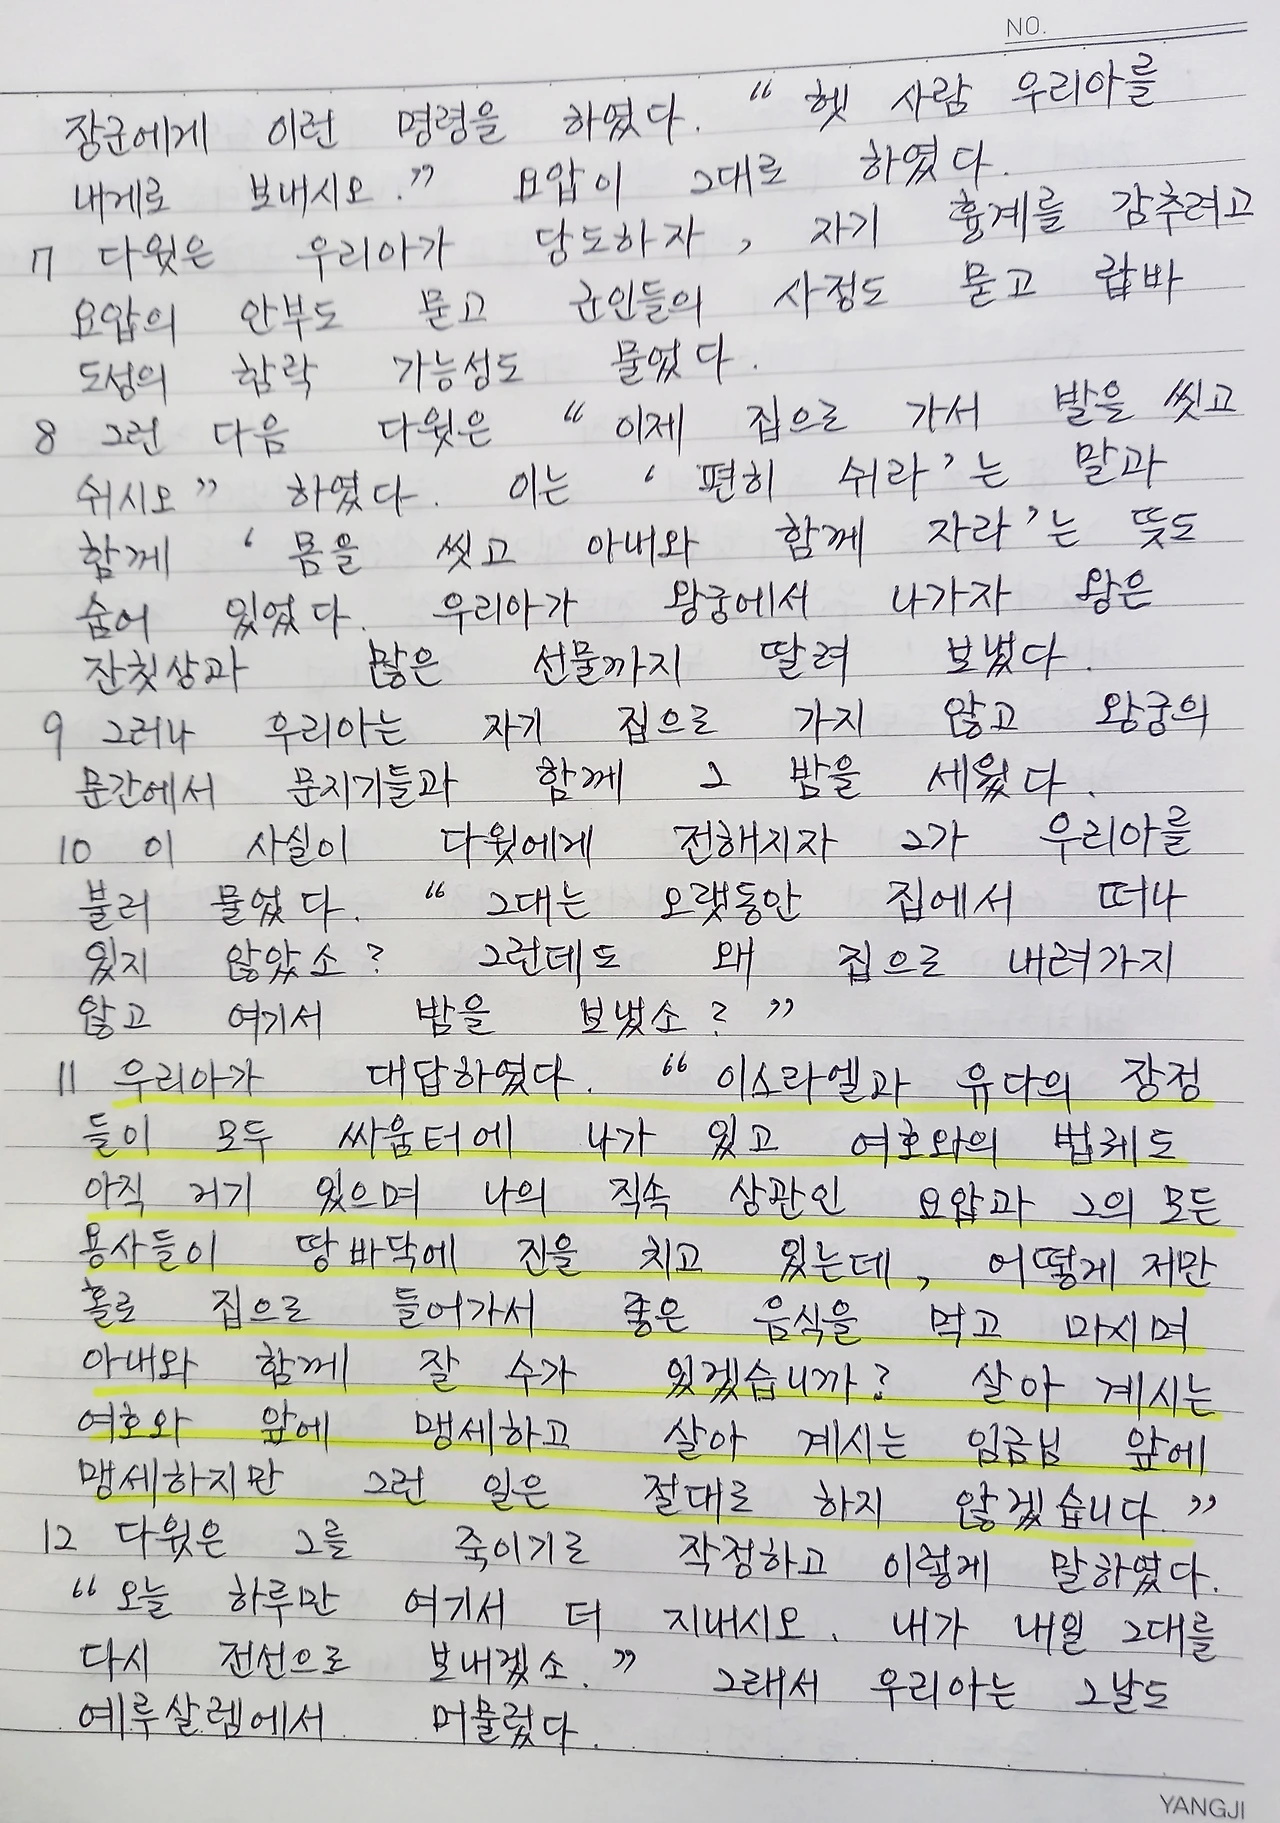 NO.
장군에게 이런 명령을 하였다. “헷 사람 우리아를
내게로 보내시오.” 요압이 그대로 하였다.
7 다윗은 우리아가 당도하자, 자기 흉계를 감추려고
요압의 안부도 묻고 군인들의 사정도 묻고 랍바
도성의 함락 가능성도 물었다.
8 그런 다음 다윗은 “이제 집으로 가서 발을 씻고
쉬시오” 하였다. 이는 ‘편히 쉬라’는 말과
함께 ‘몸을 씻고 아내와 함께 자라’는 뜻도
숨어 있었다. 우리아가 왕궁에서 나가자 왕은
잔칫상과 많은 선물까지 딸려 보냈다.
9 그러나 우리아는 자기 집으로 가지 않고 왕궁의
문간에서 문지기들과 함께 그 밤을 세웠다.
10 이 사실이 다윗에게 전해지자 그가 우리아를
불러 물었다. “그대는 오랫동안 집에서 떠나
있지 않았소? 그런데도 왜 집으로 내려가지
않고 여기서 밤을 보냈소?”
11 우리아가 대답하였다. “이스라엘과 유다의 장정
들이 모두 싸움터에 나가 있고 여호와의 법궤도
아직 거기 있으며 나의 직속 상관인 요압과 그의 모든
용사들이 땅바닥에 진을 치고 있는데, 어떻게 저만
홀로 집으로 들어가서 좋은 음식을 먹고 마시며
아내와 함께 잘 수가 있겠습니까? 살아 계시는
여호와 앞에 맹세하고 살아 계시는 임금님 앞에
맹세하지만 그런 일은 절대로 하지 않겠습니다.”
12 다윗은 그를 죽이기로 작정하고 이렇게 말하였다.
“오늘 하루만 여기서 더 지내시오. 내가 내일 그대를
다시 전선으로 보내겠소.” 그래서 우리아는 그날도
예루살렘에서 머물렀다.
YANGJI